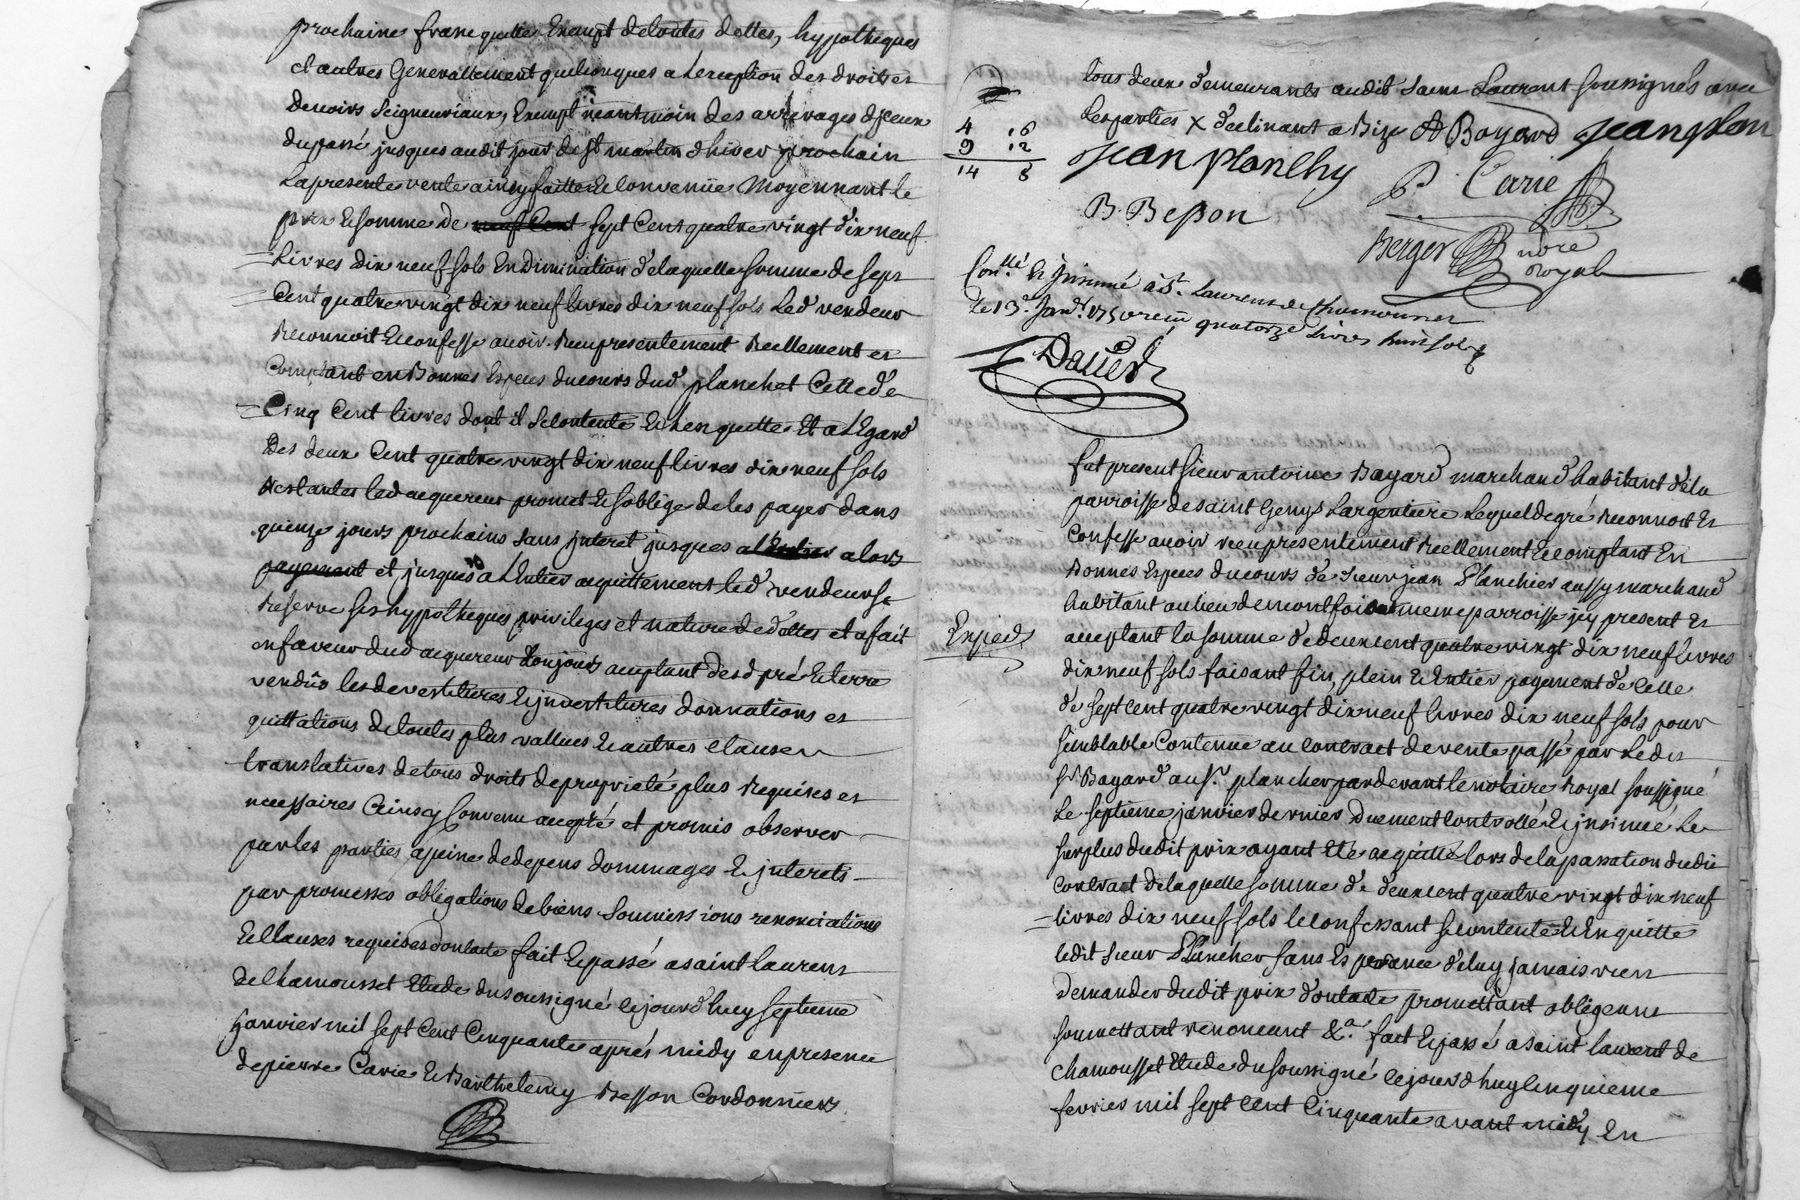 prochaine franc quitte Exempt de toutes dettes, hypotheques
et autres Generallement quelconques a Lexception des droits et
devoirs Seigneuriaux, Exempt neantmoin des arrerages d'yceux
du passé jusques audit jour de st martin dhiver prochain
La presente vente ainsy faitte Et Convenüe Moyennant le
prix Et Somme de neuf Cent sept Cent quatre vingt dix neuf
Livres dix neuf sols En Diminution de laquelle somme de sept
Cent quatre vingt dix neuf livres dix neuf sols Led vendeur
Reconnoit Et confesse avoir Receu presentement Reellement et
Comptant en Bonnes Especes du cours dud planchet Celle de
Cinq Cent livres dont il Se contente Et L'en quitte Et a L'Egard
Des deux Cent quatre vingt dix neuf livres dix neuf sols
Restantes led acquereur promet Et S'oblige de les payer dans
quinze jours prochains sans jnteret jusques a alors
payement et jusques a L'Entier acquittement led vendeur se
Reserve ses hypotheques privileges et nature de dettes et a fait
en faveur dud acquereur toujours acceptant desd pré Et terre
vendus les devestitures Et jnvestitures donnations et
quittations de toutes plus vallües Et autres clauses
translatives de tous droits de proprieté plus Requises et
necessaires Ainsy Convenu accepté et promis observer
par les parties a peine de depens dommages Et jnterets
par promesses obligations de biens Soumissions renonciations
Et Clauses requises dont acte fait Et passé a saint laurent
de Chamousset Etude du soussigné ce jourd'huy septieme
Janvier mil sept Cent Cinquante aprés midy en presence
de pierre Carie Et Barthelemy Besson Cordonniers
tous deux demeurants audit saint Laurent soussignés avec
Les parties X declinant a Bize A Bayard Jean plan
4 16
9 12
14 8
Jean planchy
P. Carie
B. Beson
Berger notre
Royal
Con.llé & Jnsinué à St. Laurent de Chamousset
Le 13e. Janv. 1750 receu quatorze livres huit sols
Dauer
fut present sieur antoine Bayard marchand habitant de la
parroisse de saint Genys Largentiere Lequel de gré Reconnoit Et
Confesse avoir receu presentement Reellement Et comptant En
Bonnes Especes du cours de sieur jean Planchier aussy marchand
habitant au lieu de montfoi meme parroisse jcy present Et
acceptant la somme de deux cent quatre vingt dix neuf livres
Expied
dix neuf sols faisant fin, plein Et Entier payement de Celle
de sept cent quatre vingt dix neuf livres dix neuf sols pour
semblable Contenue au contract de vente passé par Ledit
sr. Bayard au sr. plancher pardevant le notaire Royal soussigné
Le septieme janvier dernier Duement Controllé Et jnsinué, Le
surplus dudit prix ayant Eté acquitté lors de la passation dudit
Contract de laquelle somme de deux cent quatre vingt dix neuf
livres dix neuf sols le confessant se contente Et En quitte
ledit sieur Plancher sans Esperance de luy jamais rien
Demander dudit prix dont acte promettant obligeant
soumettant renonceant &a. fait Et passé a saint laurent de
chamousset Etude du soussigné ce jourd huy cinquieme
fevrier mil sept cent Cinquante avant midy En